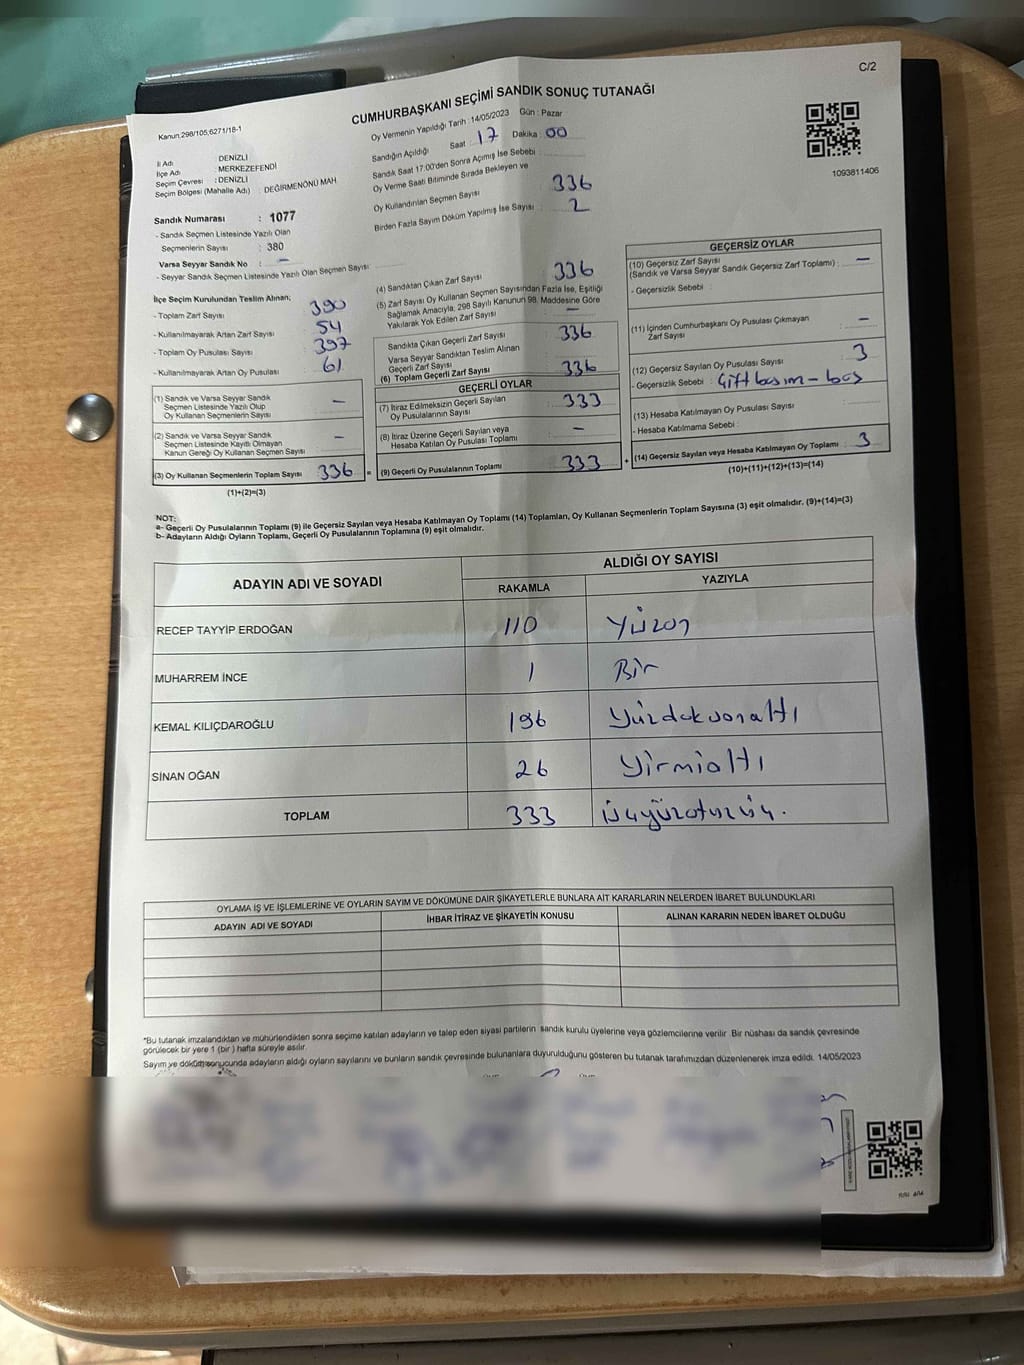 C/2
CUMHURBAŞKANI SEÇİMİ SANDIK SONUÇ TUTANAĞI
Kanun,298/105;6271/18-1
Oy Vermenin Yapıldığı Tarih : 14/05/2023 Gün : Pazar
Sandığın Açıldığı Saat 17 Dakika : 00
Sandık Saat 17:00'den Sonra Açımış İse Sebebi :
Oy Verme Saati Bitiminde Sırada Bekleyen ve
Oy Kullandırılan Seçmen Sayısı 336
Birden Fazla Sayım Döküm Yapılmış İse Sayısı : 2
1093811406
İl Adı : DENİZLİ
İlçe Adı : MERKEZEFENDİ
Seçim Çevresi : DENİZLİ
Seçim Bölgesi (Mahalle Adı) : DEĞİRMENÖNÜ MAH
Sandık Numarası : 1077
- Sandık Seçmen Listesinde Yazılı Olan
Seçmenlerin Sayısı : 380
Varsa Seyyar Sandık No : –
- Seyyar Sandık Seçmen Listesinde Yazılı Olan Seçmen Sayısı :
İlçe Seçim Kurulundan Teslim Alınan;
- Toplam Zarf Sayısı : 390
- Kullanılmayarak Artan Zarf Sayısı : 54
- Toplam Oy Pusulası Sayısı : 397
- Kullanılmayarak Artan Oy Pusulası : 61
(1) Sandık ve Varsa Seyyar Sandık
Seçmen Listesinde Yazılı Olup
Oy Kullanan Seçmenlerin Sayısı : –
(2) Sandık ve Varsa Seyyar Sandık
Seçmen Listesinde Kayıtlı Olmayan
Kanun Gereği Oy Kullanan Seçmen Sayısı : –
(3) Oy Kullanan Seçmenlerin Toplam Sayısı 336
(1)+(2)=(3)
(4) Sandıktan Çıkan Zarf Sayısı : 336
(5) Zarf Sayısı Oy Kullanan Seçmen Sayısından Fazla İse, Eşitliği
Sağlamak Amacıyla, 298 Sayılı Kanunun 98. Maddesine Göre
Yakılarak Yok Edilen Zarf Sayısı : –
Sandıkta Çıkan Geçerli Zarf Sayısı : 336
Varsa Seyyar Sandıktan Teslim Alınan
Geçerli Zarf Sayısı
(6) Toplam Geçerli Zarf Sayısı : 336
GEÇERLİ OYLAR
(7) İtiraz Edilmeksizin Geçerli Sayılan
Oy Pusulalarının Sayısı : 333
(8) İtiraz Üzerine Geçerli Sayılan veya
Hesaba Katılan Oy Pusulası Toplamı : –
= (9) Geçerli Oy Pusulalarının Toplamı 333
GEÇERSİZ OYLAR
(10) Geçersiz Zarf Sayısı
(Sandık ve Varsa Seyyar Sandık Geçersiz Zarf Toplamı) : –
- Geçersizlik Sebebi :
(11) İçinden Cumhurbaşkanı Oy Pusulası Çıkmayan
Zarf Sayısı : –
(12) Geçersiz Sayılan Oy Pusulası Sayısı : 3
- Geçersizlik Sebebi : Çift basım – boş
(13) Hesaba Katılmayan Oy Pusulası Sayısı :
- Hesaba Katılmama Sebebi :
+ (14) Geçersiz Sayılan veya Hesaba Katılmayan Oy Toplamı : 3
(10)+(11)+(12)+(13)=(14)
NOT:
a- Geçerli Oy Pusulalarının Toplamı (9) ile Geçersiz Sayılan veya Hesaba Katılmayan Oy Toplamı (14) Toplamları, Oy Kullanan Seçmenlerin Toplam Sayısına (3) eşit olmalıdır. (9)+(14)=(3)
b- Adayların Aldığı Oyların Toplamı, Geçerli Oy Pusulalarının Toplamına (9) eşit olmalıdır.
ADAYIN ADI VE SOYADI
ALDIĞI OY SAYISI
RAKAMLA YAZIYLA
RECEP TAYYİP ERDOĞAN 110 Yüzon
MUHARREM İNCE 1 Bir
KEMAL KILIÇDAROĞLU 196 Yüzdoksanaltı
SİNAN OĞAN 26 Yirmialtı
TOPLAM 333 üçyüzotuzüç.
OYLAMA İŞ VE İŞLEMLERİNE VE OYLARIN SAYIM VE DÖKÜMÜNE DAİR ŞİKAYETLERLE BUNLARA AİT KARARLARIN NELERDEN İBARET BULUNDUKLARI
ADAYIN ADI VE SOYADI İHBAR İTİRAZ VE ŞİKAYETİN KONUSU ALINAN KARARIN NEDEN İBARET OLDUĞU
*Bu tutanak imzalandıktan ve mühürlendikten sonra seçime katılan adayların ve talep eden siyasi partilerin sandık kurulu üyelerine veya gözlemcilerine verilir. Bir nüshası da sandık çevresinde
görülecek bir yere 1 (bir ) hafta süreyle asılır.
Sayım ve döküm sonucunda adayların aldığı oyların sayılarını ve bunların sandık çevresinde bulunanlara duyurulduğunu gösteren bu tutanak tarafımızdan düzenlenerek imza edildi. 14/05/2023